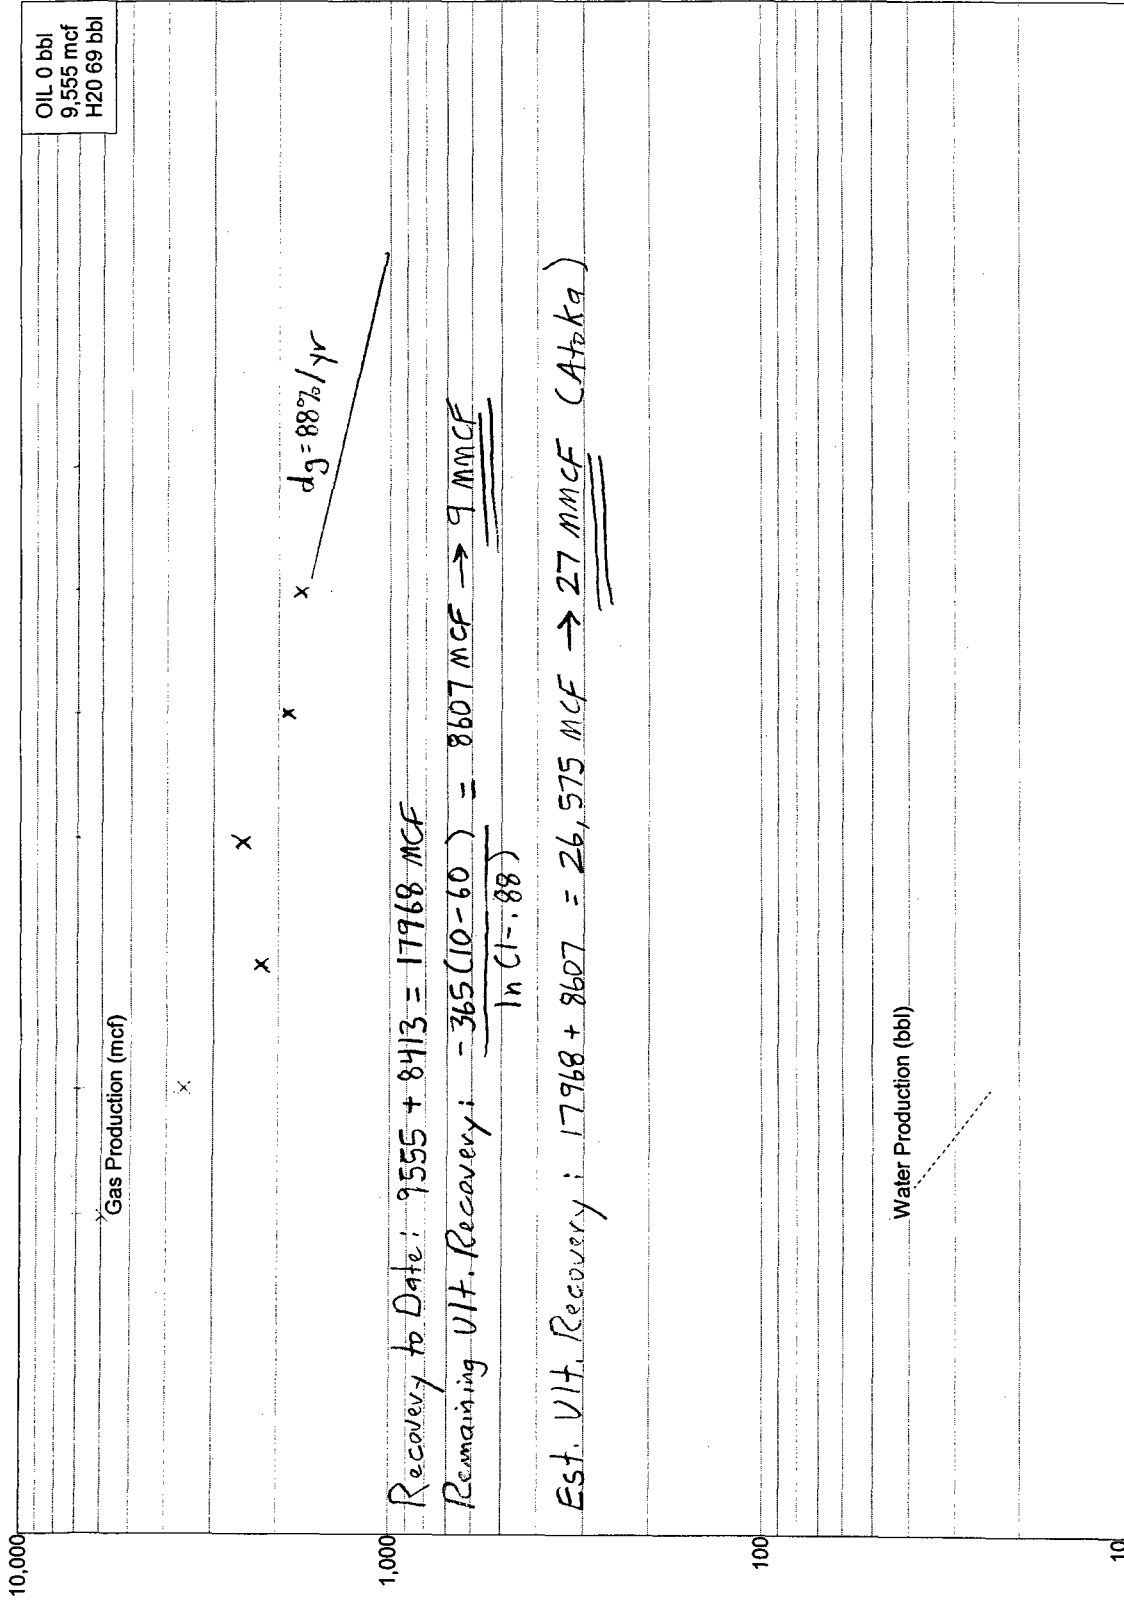 OIL 0 bbl
9,555 mcf
H20 69 bbl
10,000
Gas Production (mcf)
dg=88%/yr
1,000
Recovery to Date: 9555 + 8413 = 17968 MCF
Remaining Ult. Recovery: -365(10-60) = 8607 MCF → 9 MMCF
ln(1-.88)
Est. Ult. Recovery: 17968 + 8607 = 26,575 MCF → 27 MMCF (Atoka)
100
Water Production (bbl)
10